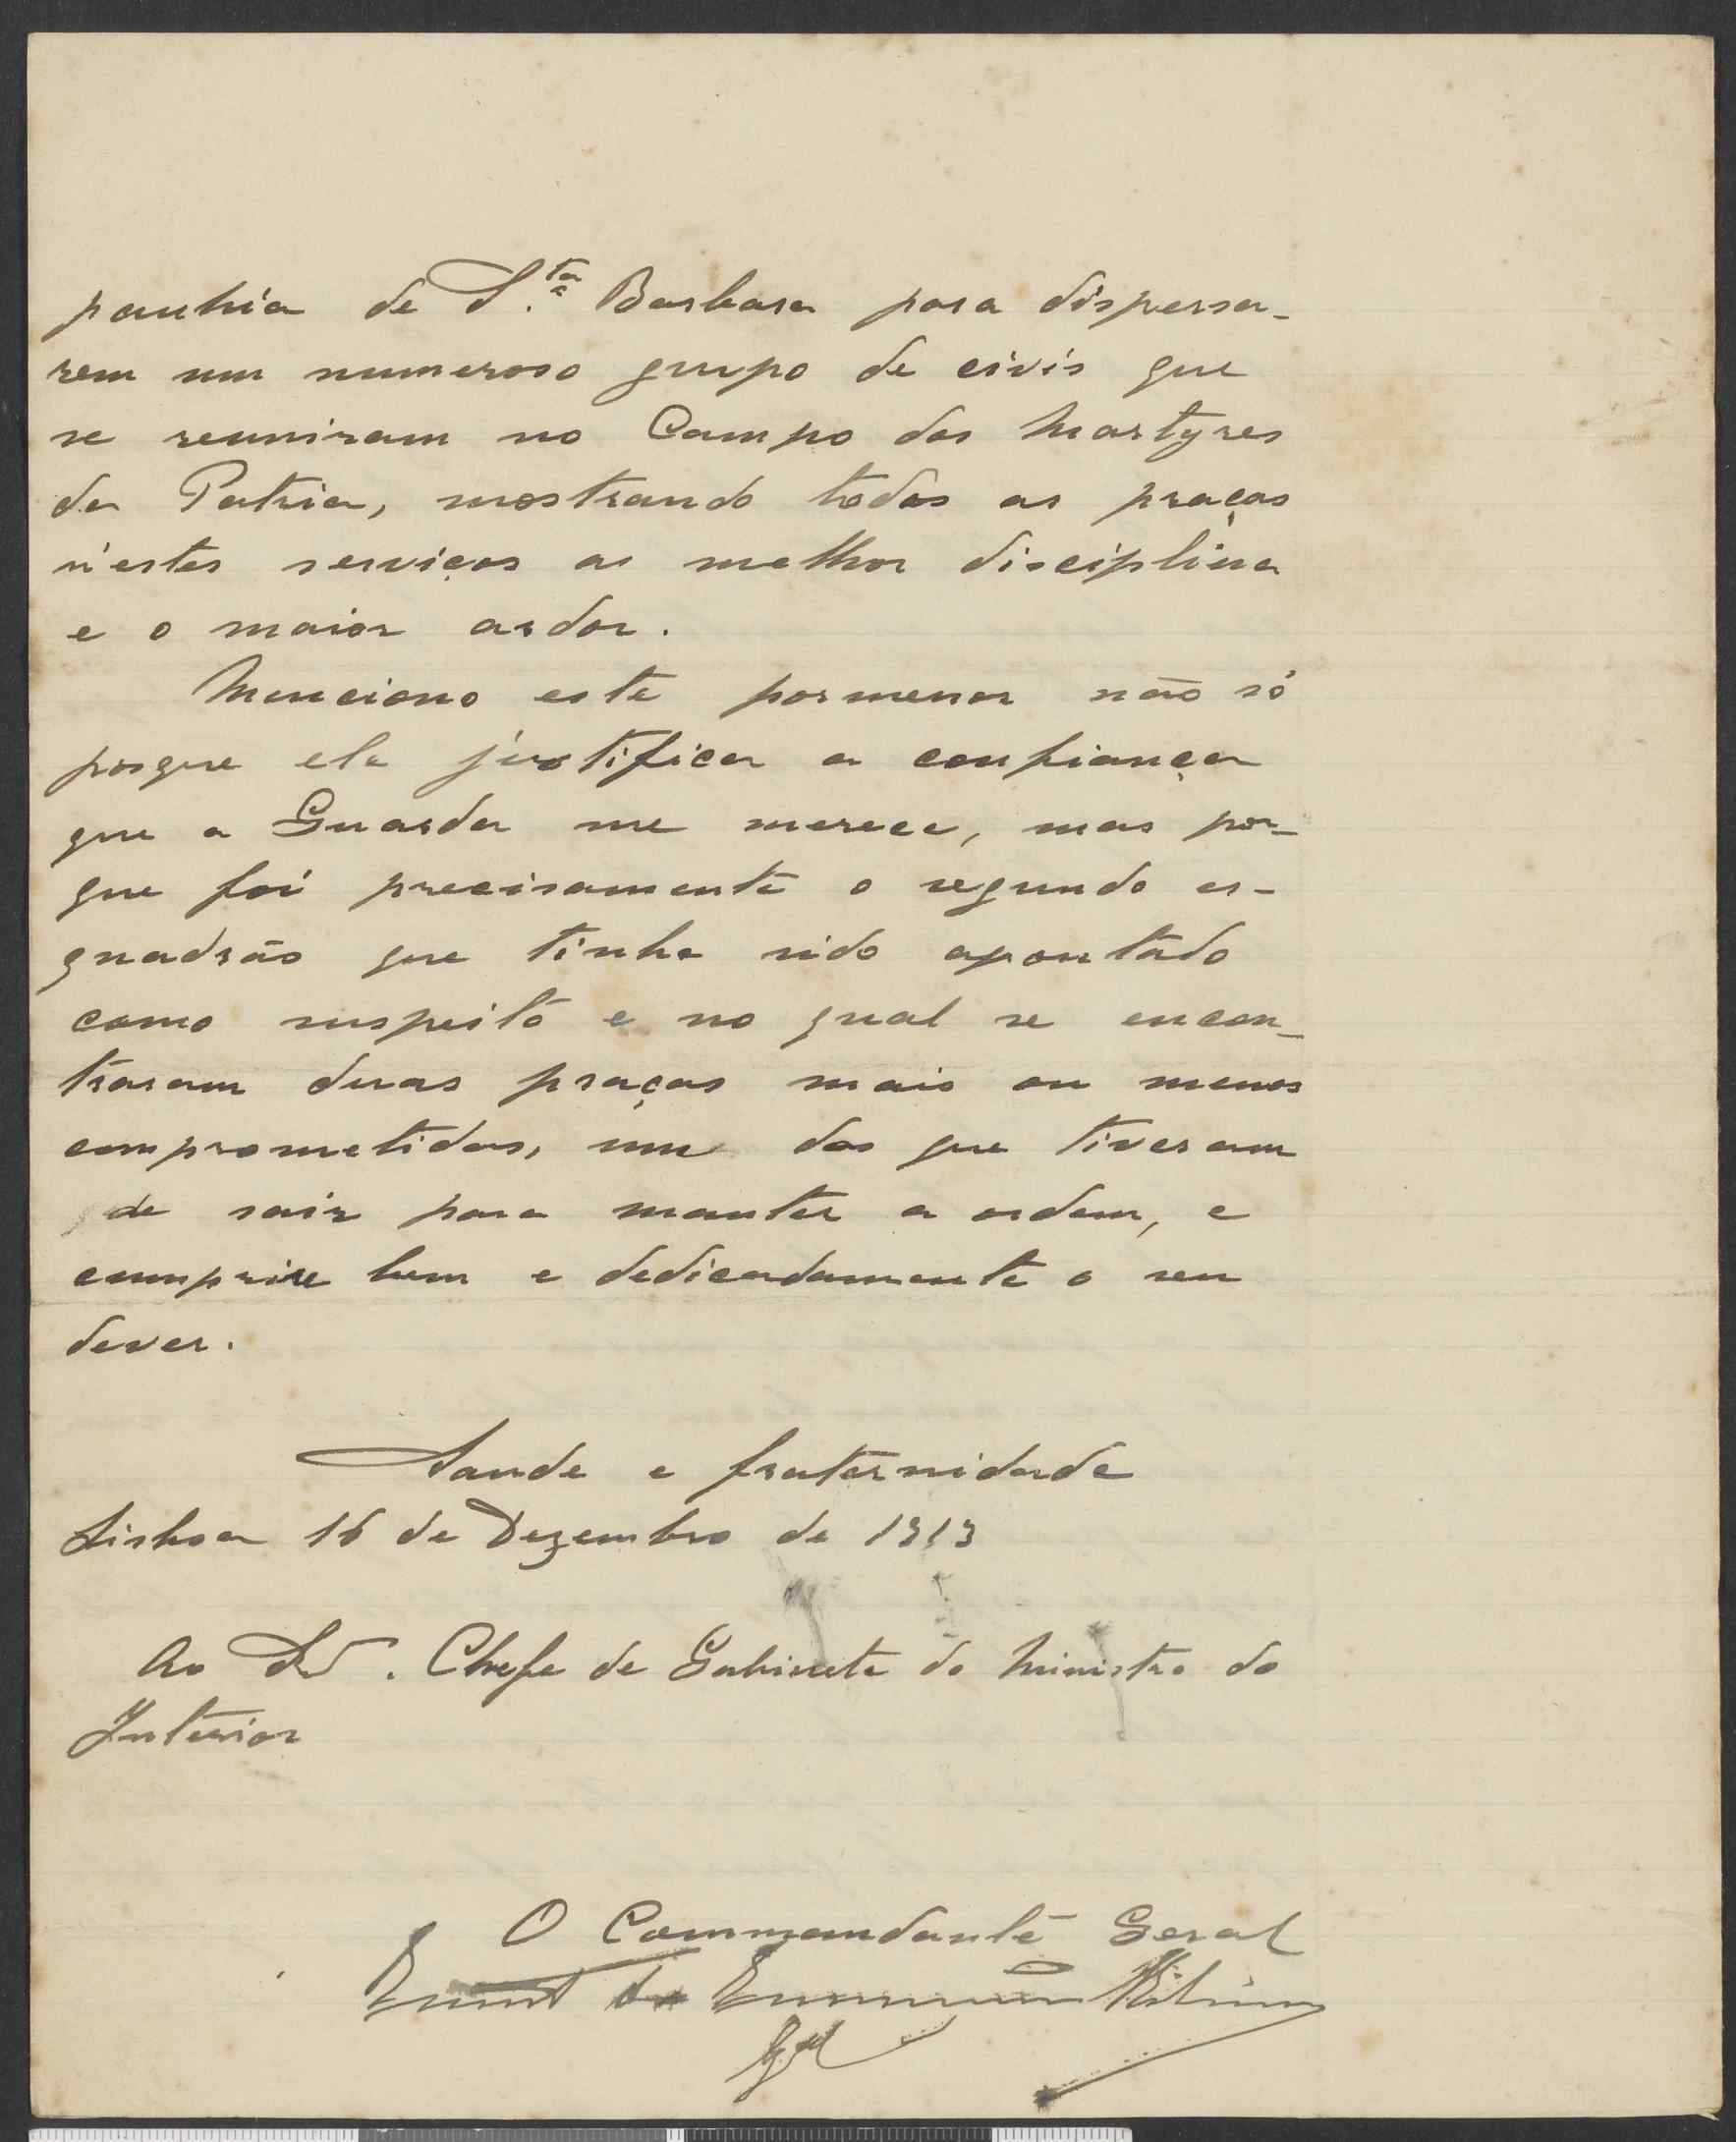 panhia de S.ta Barbara para dispersa-
rem um numeroso grupo de civis que
se reuniram no Campo dos Martyres
da Patria, mostrando todas as praças
n'estes serviços a melhor disciplina
e o maior ardor.
Menciono este pormenor não só
porque ele justifica a confiança
que a Guarda me merece, mas por-
que foi precisamente o segundo es-
quadrão que tinha sido apontado
como suspeito e no qual se encon-
traram duas praças mais ou menos
comprometidas, um dos que tiveram
de sair para manter a ordem, e
cumprire bem e dedicadamente o seu
dever.
Saude e fraternidade
Lisboa 16 de Dezembro de 1913
Ao Sr. Chefe de Gabinete do Ministro do
Interior
O Commandante Geral